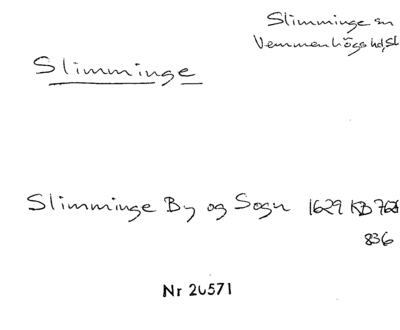 Slimminge sn
Vemmenhögs hd, Sk
Slimminge
Slimminge By og Sogn 1629 KB 768
836
Nr 20571